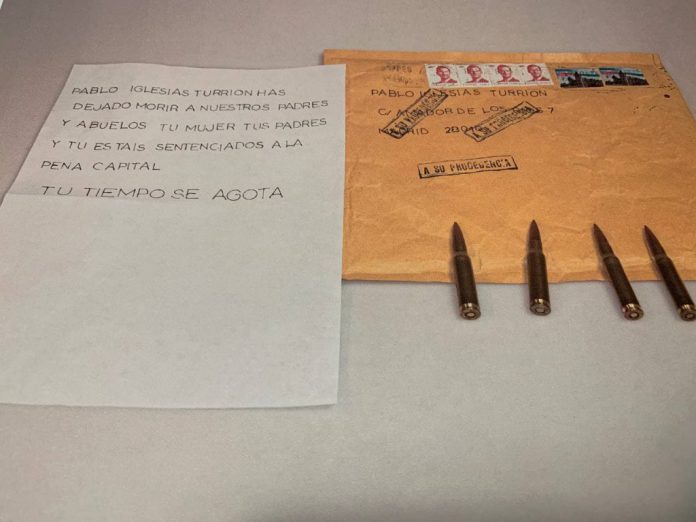 PABLO IGLESIAS TURRION HAS
DEJADO MORIR A NUESTROS PADRES
Y ABUELOS TU MUJER TUS PADRES
Y TU ESTAIS SENTENCIADOS A LA
PENA CAPITAL
TU TIEMPO SE AGOTA
PABLO IGLESIAS TURRION
C/ DE LOS 7
MADRID
A SU
A SU
A SU